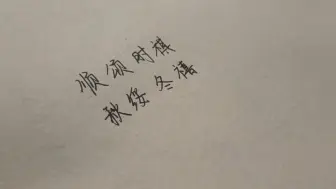 顺颂时祺
秋绥冬禧